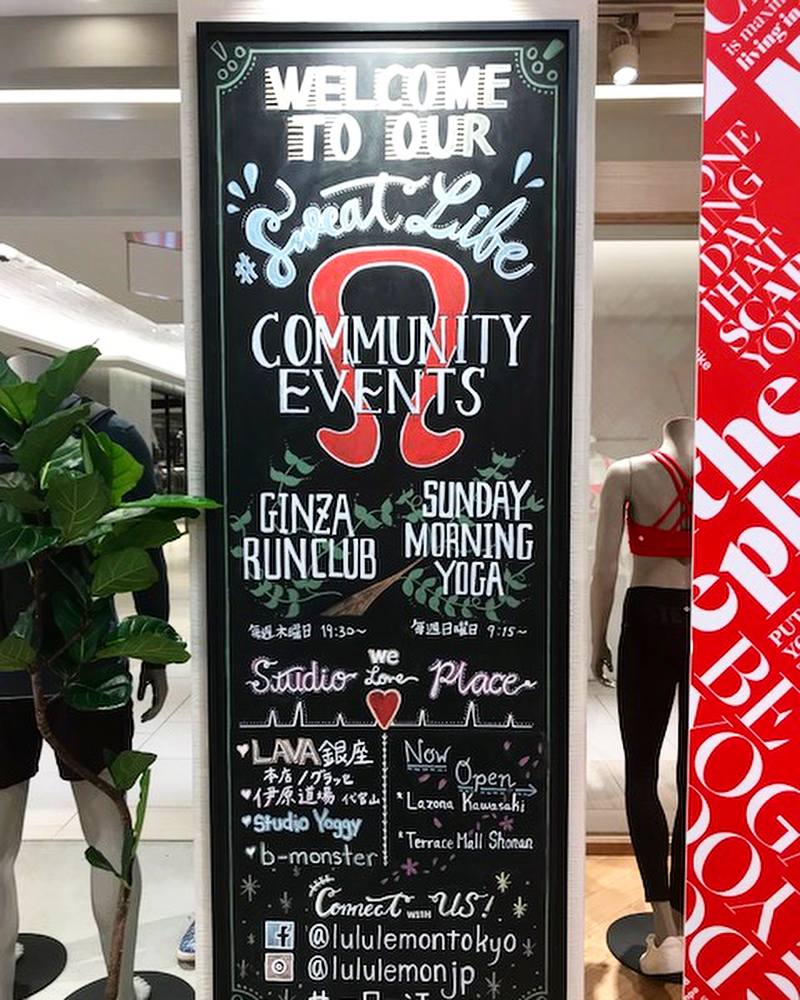 WELCOME
TO OUR
#Sweat Life
COMMUNITY
EVENTS
GINZA
RUNCLUB
毎週木曜日 19:30~
SUNDAY
MORNING
YOGA
毎週日曜日 9:15~
we
Studio Love Place
LAVA銀座
本店/グラッセ
伊原道場 代官山
Studio Yoggy
b-monster
Now
Open
*Lazona Kawasaki
*Terrace Mall Shonan
Connect WITH US!
@lululemontokyo
@lululemonjp
is maxim
living in
ONE
ING
DAY
THAT
SCAR
YOU
the
eph
PUT
YO
BE
YOGA